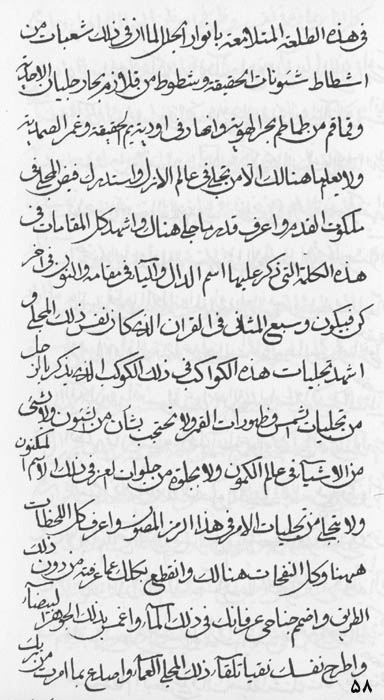 فی هذه الطلعة المتلامعة بانوار الجلال لان فی ذلك شعبات من
شطاط شئونات الحقیقة و شطوط من قلازم بحار طلسان الاحدیة
و قماقم من طماطم بحر الهویة و انهار فی اودیة یم الحقیقة و غمر الصمدیة
ولا یعلم ما هنالك الا من تجلی فی عالم الازل و استدرك فیض المجلی فی
ملكوت القدم و اعرف قدر ما تجلی هنالك و اشهد كل المقامات فی
هذه الكلمة التی ذكر علیها اسم الدال و الیاء فی مقامه و النون فی اخر
كن فیكون و سبع المثانی فی القران الذی كان نفس ذلك المجلی و
اشهد تجلیات هذه الكواكب فی ذلك الكوكب الذی یذكر بان
من تجلیات شمس و ظهورات القمر ولا تحتجب بشان من الشئون ولا بشیء
من الاشیاء فی علم المكنون ولا بجلوة من جلوات العز فی ذلك الاسم المكنون
ولا بتجلی من تجلیات الامر فی هذا الرمز المصون و اعرف كل اللحظات
ههنا و كل النفحات هنالك و انقطع بكلك عما عرفته من دون ذلك
الطریق و اضمم جناحی عرفانك فی ذلك الماء و اغمس بذلك الجوهر البیضاء
و اطرح نفسك نقیا تلقاء ذلك المجلی العماء و اصدع بما امرت من ربك
۵۸